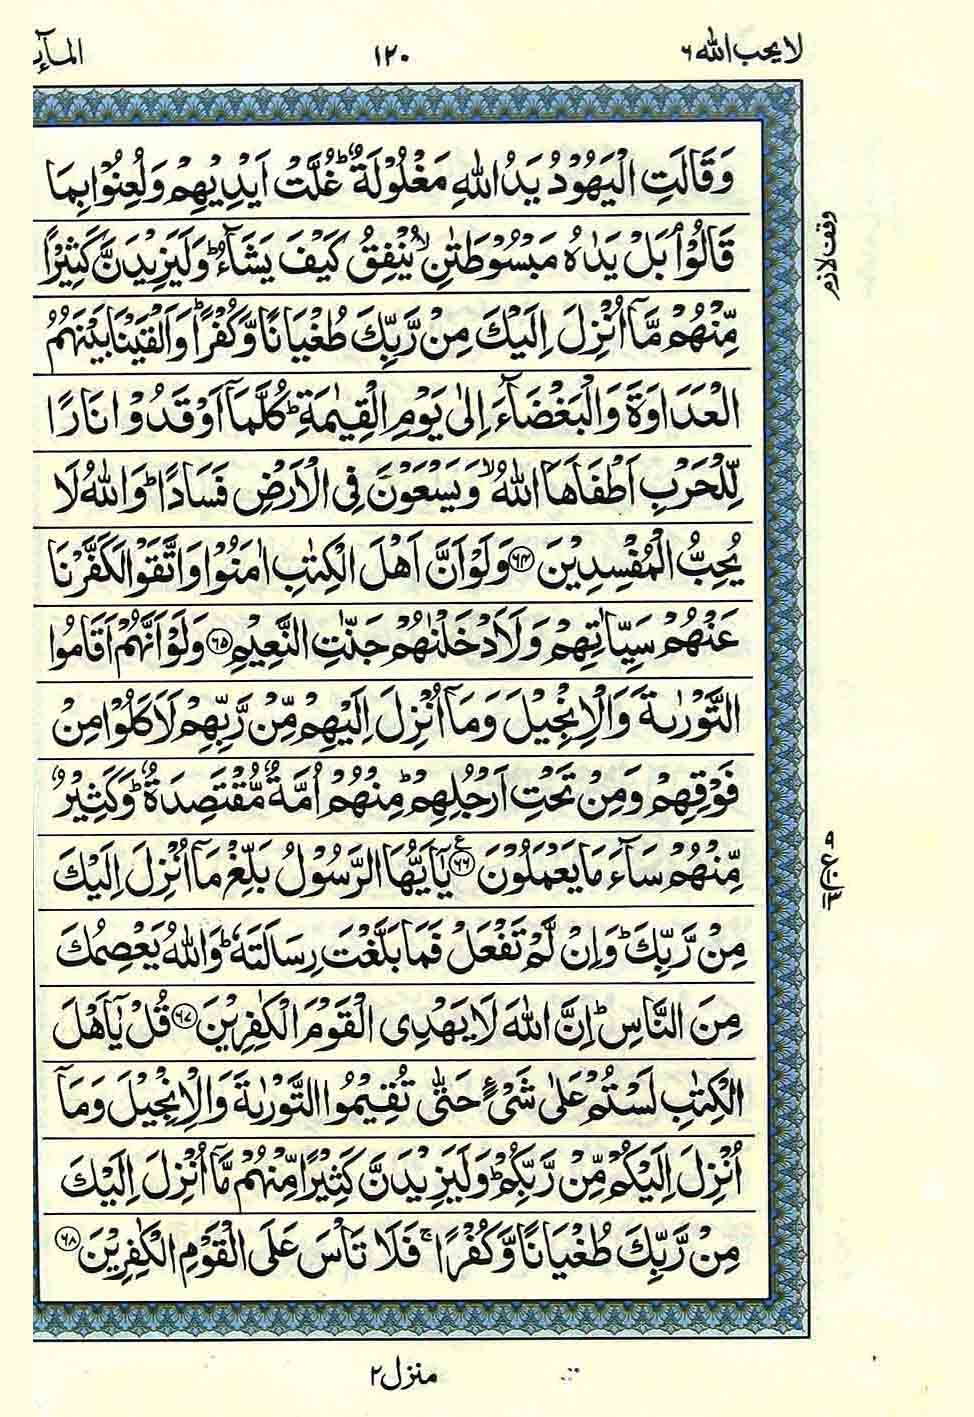 لا يحب الله ٦
١٢٠
وَقَالَتِ الْيَهُوْدُ يَدُ اللّٰهِ مَغْلُوْلَةٌ ؕ غُلَّتْ اَيْدِيْهِمْ وَلُعِنُوْا بِمَا
قَالُوْا ۘ بَلْ يَدٰهُ مَبْسُوْطَتٰنِ ۙ يُنْفِقُ كَيْفَ يَشَآءُ ؕ وَلَيَزِيْدَنَّ كَثِيْرًا
مِّنْهُمْ مَّاۤ اُنْزِلَ اِلَيْكَ مِنْ رَّبِّكَ طُغْيَانًا وَّكُفْرًا ؕ وَاَلْقَيْنَا بَيْنَهُمُ
الْعَدَاوَةَ وَالْبَغْضَآءَ اِلٰى يَوْمِ الْقِيٰمَةِ ؕ كُلَّمَاۤ اَوْقَدُوْا نَارًا
لِّلْحَرْبِ اَطْفَاَهَا اللّٰهُ ۙ وَيَسْعَوْنَ فِى الْاَرْضِ فَسَادًا ؕ وَاللّٰهُ لَا
يُحِبُّ الْمُفْسِدِيْنَ ﴿۶۴﴾ وَلَوْ اَنَّ اَهْلَ الْكِتٰبِ اٰمَنُوْا وَاتَّقَوْا لَكَفَّرْنَا
عَنْهُمْ سَيِّاٰتِهِمْ وَلَاَدْخَلْنٰهُمْ جَنّٰتِ النَّعِيْمِ ﴿۶۵﴾ وَلَوْ اَنَّهُمْ اَقَامُوا
التَّوْرٰىةَ وَالْاِنْجِيْلَ وَمَاۤ اُنْزِلَ اِلَيْهِمْ مِّنْ رَّبِّهِمْ لَاَكَلُوْا مِنْ
فَوْقِهِمْ وَمِنْ تَحْتِ اَرْجُلِهِمْ ؕ مِنْهُمْ اُمَّةٌ مُّقْتَصِدَةٌ ؕ وَكَثِيْرٌ
مِّنْهُمْ سَآءَ مَا يَعْمَلُوْنَ ﴿۶۶﴾ يٰۤاَيُّهَا الرَّسُوْلُ بَلِّغْ مَاۤ اُنْزِلَ اِلَيْكَ
مِنْ رَّبِّكَ ؕ وَاِنْ لَّمْ تَفْعَلْ فَمَا بَلَّغْتَ رِسَالَتَهٗ ؕ وَاللّٰهُ يَعْصِمُكَ
مِنَ النَّاسِ ؕ اِنَّ اللّٰهَ لَا يَهْدِى الْقَوْمَ الْكٰفِرِيْنَ ﴿۶۷﴾ قُلْ يٰۤاَهْلَ
الْكِتٰبِ لَسْتُمْ عَلٰى شَىْءٍ حَتّٰى تُقِيْمُوا التَّوْرٰىةَ وَالْاِنْجِيْلَ وَمَاۤ
اُنْزِلَ اِلَيْكُمْ مِّنْ رَّبِّكُمْ ؕ وَلَيَزِيْدَنَّ كَثِيْرًا مِّنْهُمْ مَّاۤ اُنْزِلَ اِلَيْكَ
مِنْ رَّبِّكَ طُغْيَانًا وَّكُفْرًا ۚ فَلَا تَاْسَ عَلَى الْقَوْمِ الْكٰفِرِيْنَ ﴿۶۸﴾
وقف لازم
منزل ٢